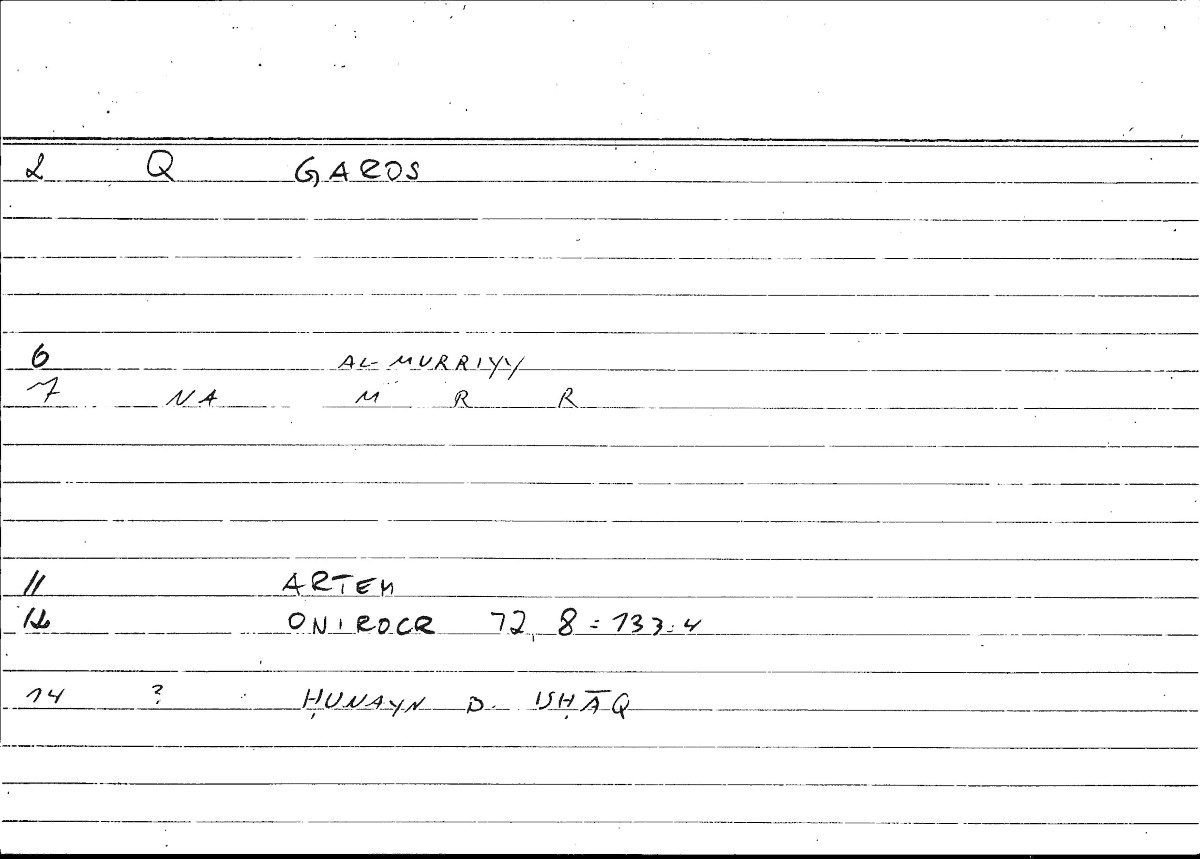 2 Q GAROS
6 AL-MURRIYY
7 NA M R R
11 ARTEM
12 ONIROCR 72, 8 = 133:4
14 ? ḤUNAYN B. ISḤĀQ